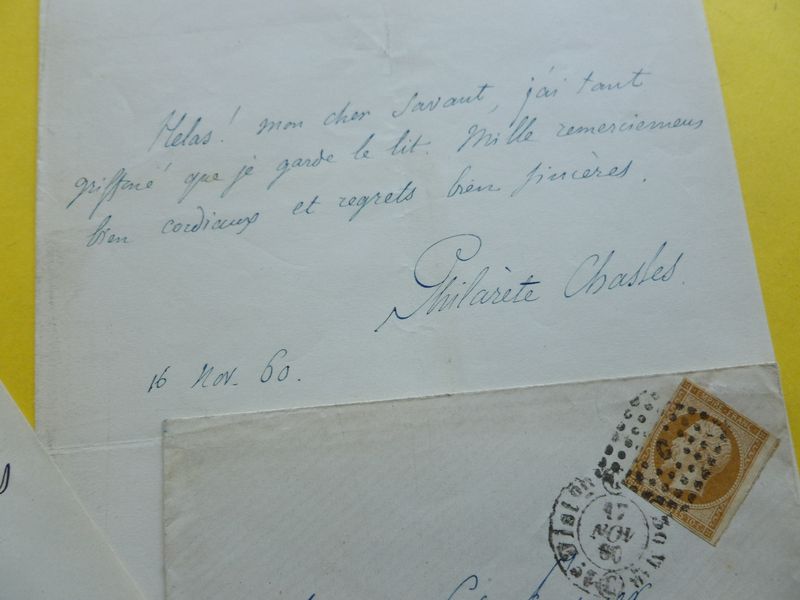 Helas! mon cher Savant, j'ai tant
griffoné que je garde le lit. Mille remerciemens
bien cordiaux et regrets bien sincères.
Philarète Chasles.
16 Nov. 60.
EMPIRE FRANC
17
NOV
60